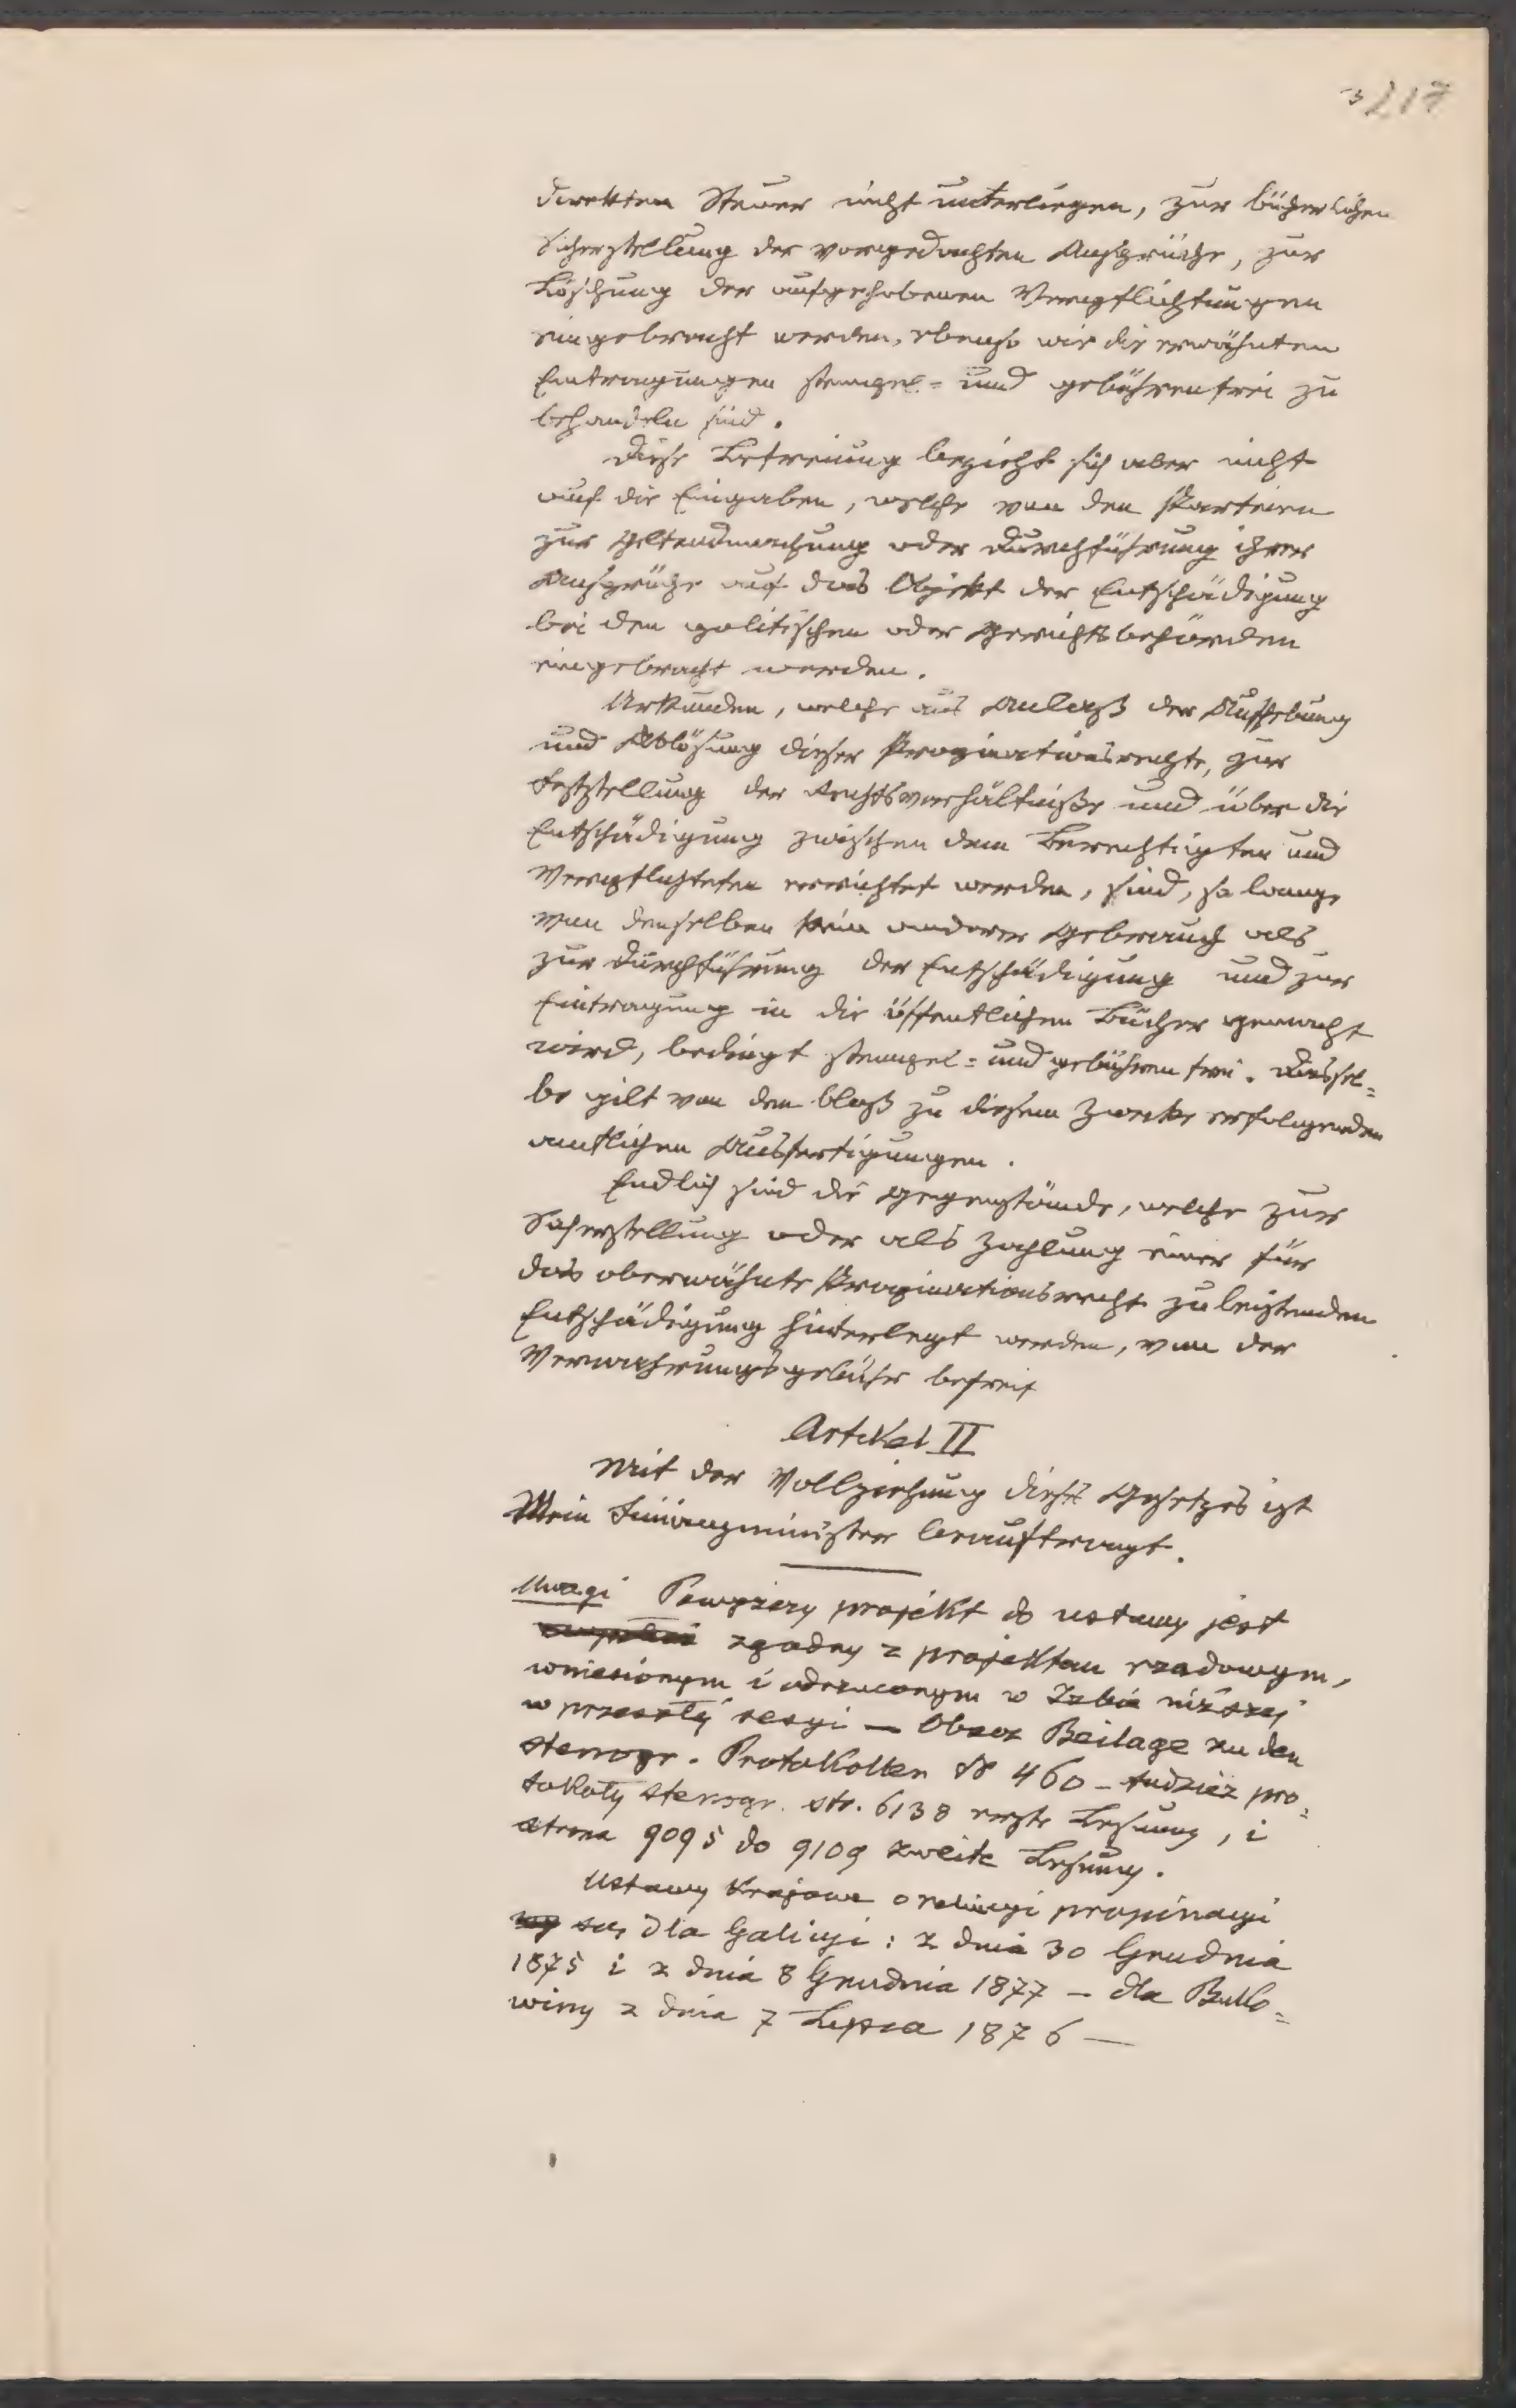 217
direkten Steuer nicht unterliegen, zur bücherlichen
Sicherstellung der vorgedachten Ansprüche, zur
Löschung der aufgehobenen Verpflichtungen
eingebracht werden, ebenso wie die erwähnten
Eintragungen stempel= und gebührenfrei zu
behandeln sind.
Diese Befreiung bezieht sich aber nicht
auf die Eingaben, welche von den Parteien
zur Geltendmachung oder Durchführung ihrer
Ansprüche auf das Objekt der Entschädigung
bei den politischen oder Gerichtsbehörden
eingebracht werden.
Urkunden, welche aus Anlaß der Aufhebung
und Ablösung dieser Propinationsrechte, zur
Feststellung der Rechtsverhältniße und über die
Entschädigung zwischen dem Berechtigten und
Verpflichteten errichtet werden, sind, so lange
von denselben kein anderer Gebrauch als
zur Durchführung der Entschädigung und zur
Eintragung in die öffentlichen Bücher gemacht
wird, bedingt stempel= und gebührenfrei. Dassel=
be gilt von den bloß zu diesem Zwecke erfolgenden
amtlichen Ausfertigungen.
Endlich sind die Gegenstände, welche zur
Sicherstellung oder als Zahlung einer für
das oberwähnte Propinationsrecht zu leistenden
Entschädigung hinterlegt werden, von der
Verwahrungsgebühr befreit
Artikel II
Mit der Vollziehung dieses Gesetzes ist
Mein Finanzminister beauftragt.
Uwagi Powyższy projekt do ustawy jest
zgodny z projektem rządowym,
wniesionym i odrzuconym w Izbie niższej
w przeszłej sesyi — Obacz Beilage zu den
stenogr. Protokollen No 460 – tudzież pro=
tokoły stenogr. str. 6138 erste Lesung, i
strona 9095 do 9109 zweite Lesung.
Ustawy krajowe o propinacyi
są dla Galicyi: z dnia 30 Grudnia
1875 i z dnia 8 Grudnia 1877 – dla Buko=
winy z dnia 7 Lipca 1876 —